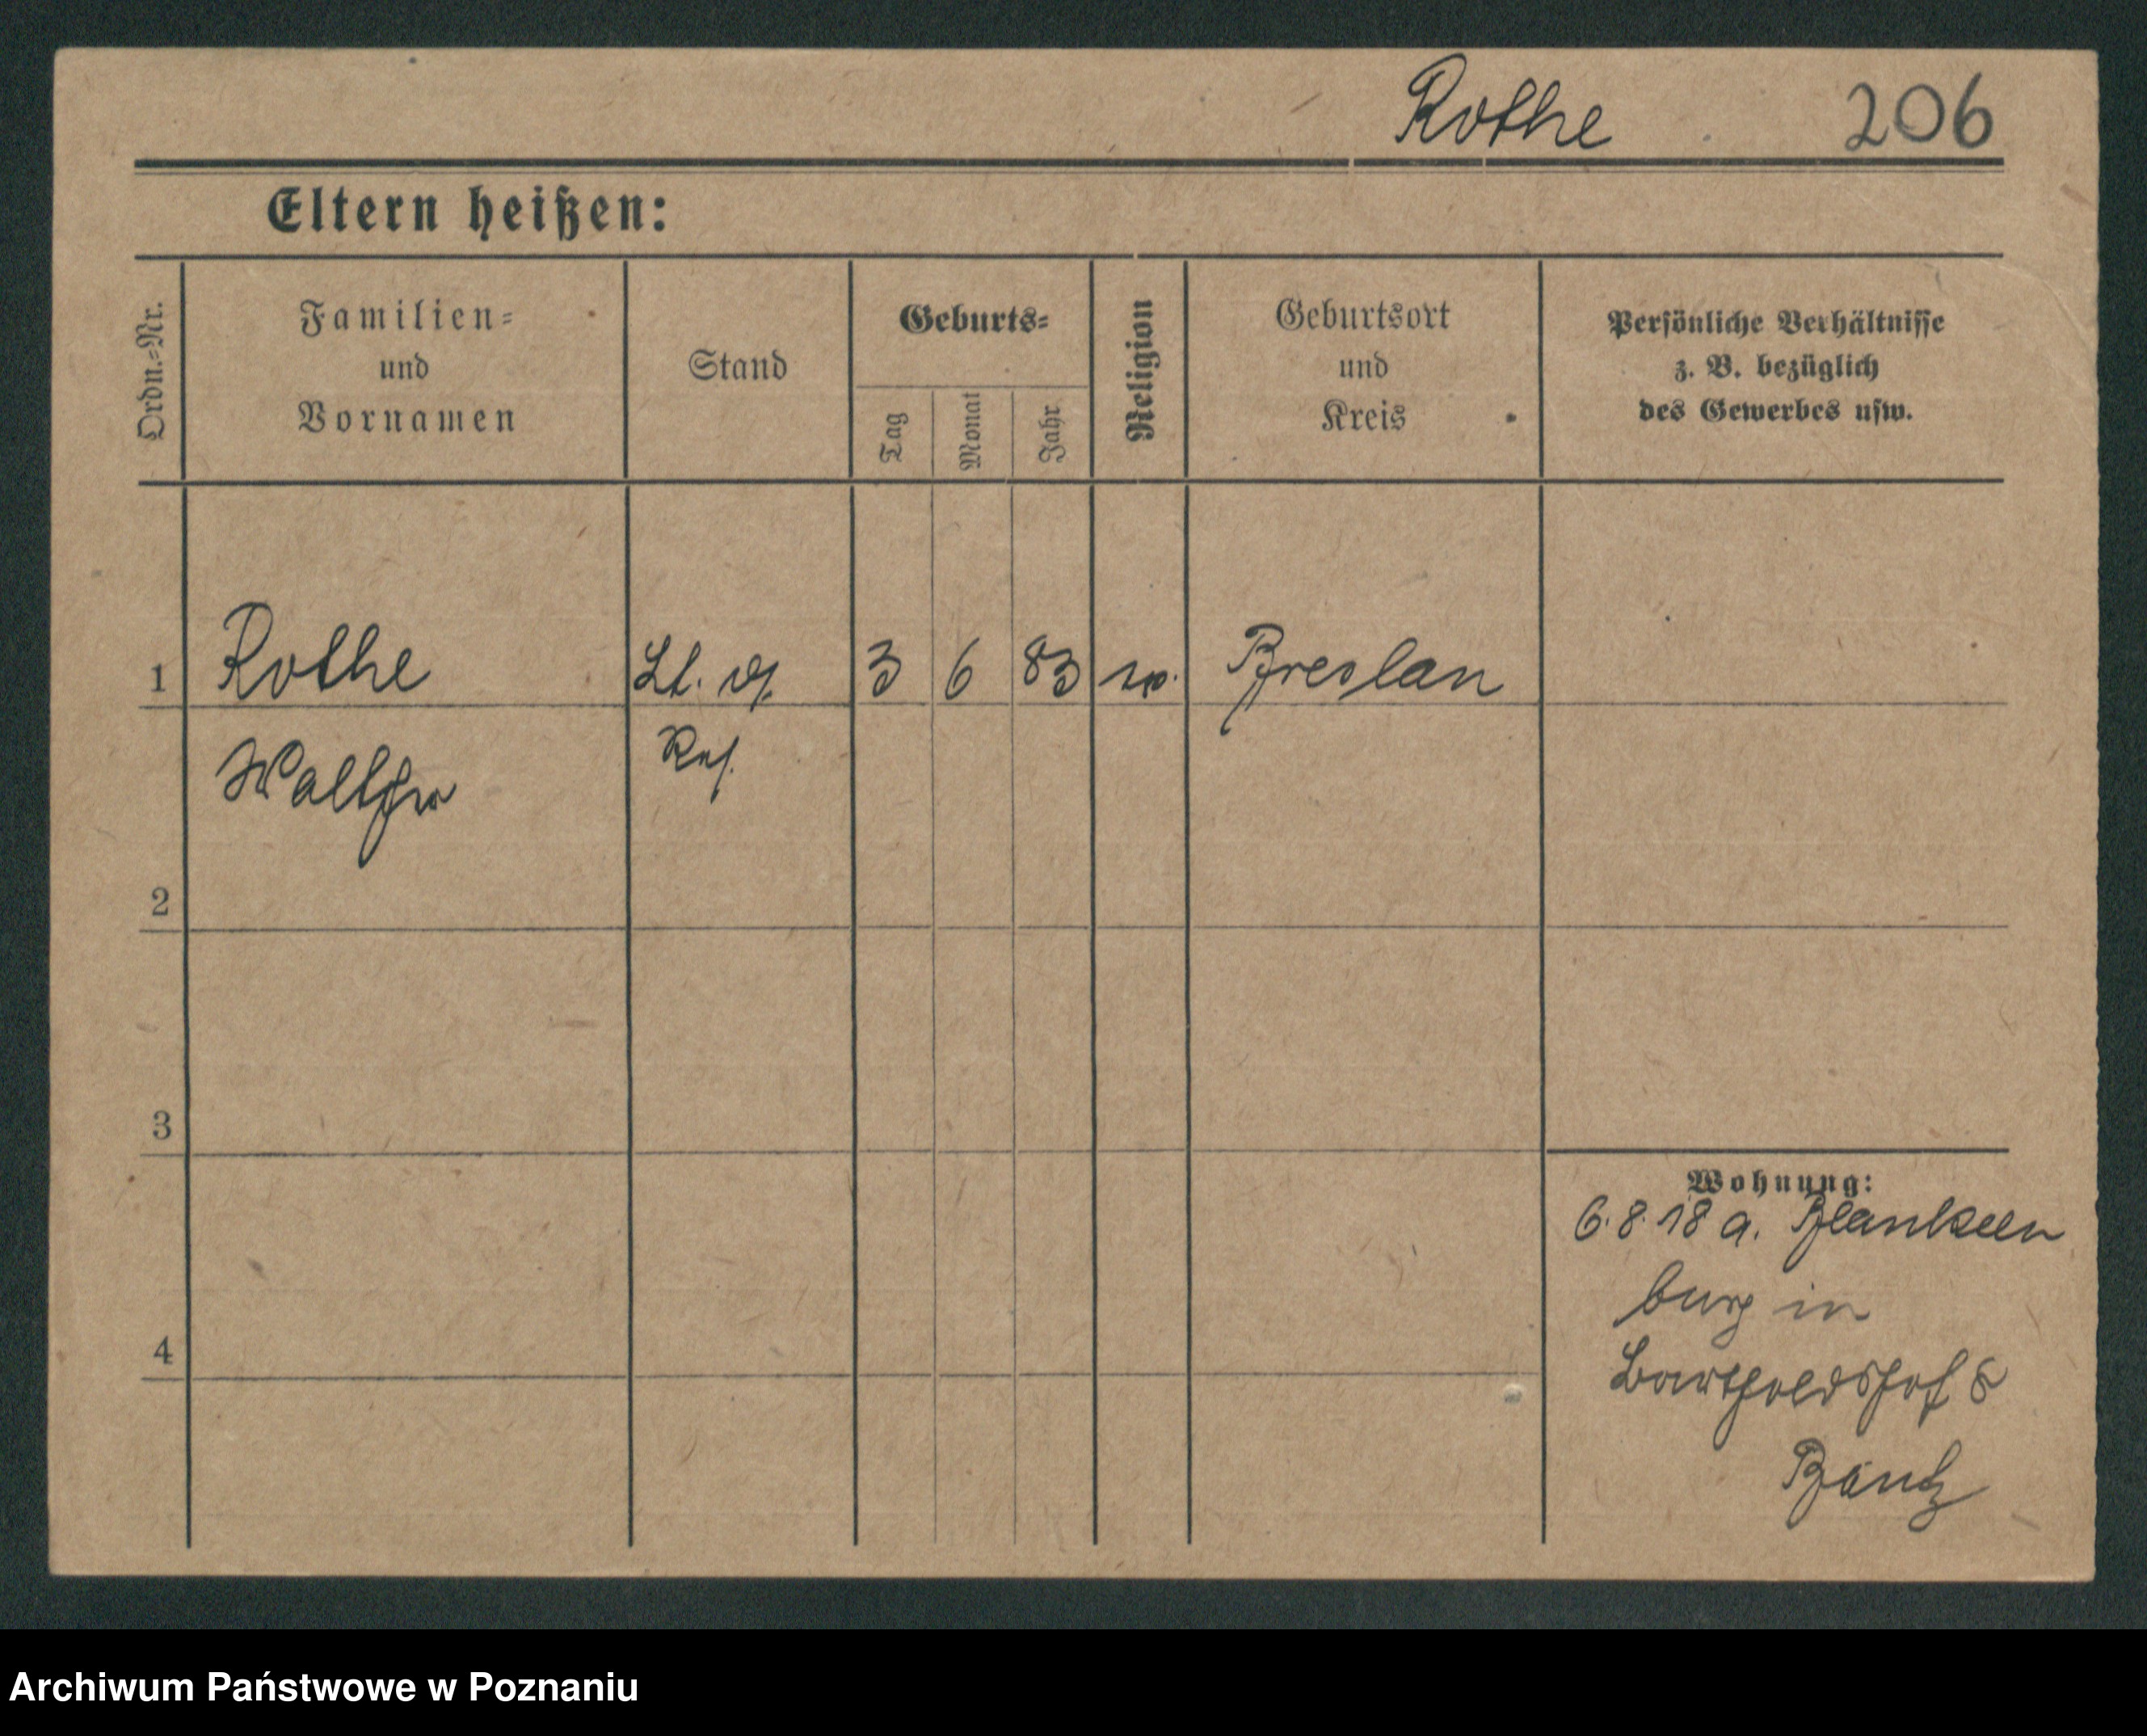 Rothe 206
Eltern heißen:
Ordn.=Nr.
Familien=
und
Vornamen
Stand
Geburts=
Tag
Monat
Jahr
Religion
Geburtsort
und
Kreis
Persönliche Verhältnisse
z. B. bezüglich
des Gewerbes usw.
1 Rothe Lt. d. 3 6 83 ev. Breslau
Walther Res.
2
3
4
Wohnung:
6.8.18 a. Blanken
burg in
Bartholdshof 8
Bäntz
Archiwum Państwowe w Poznaniu